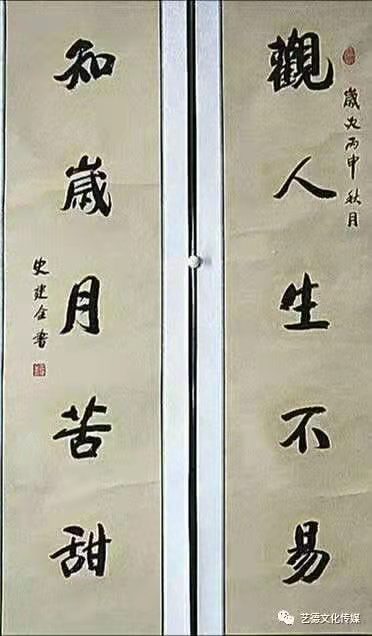 歲次丙申秋月
觀人生不易
知歲月苦甜
史建全書
艺德文化传媒